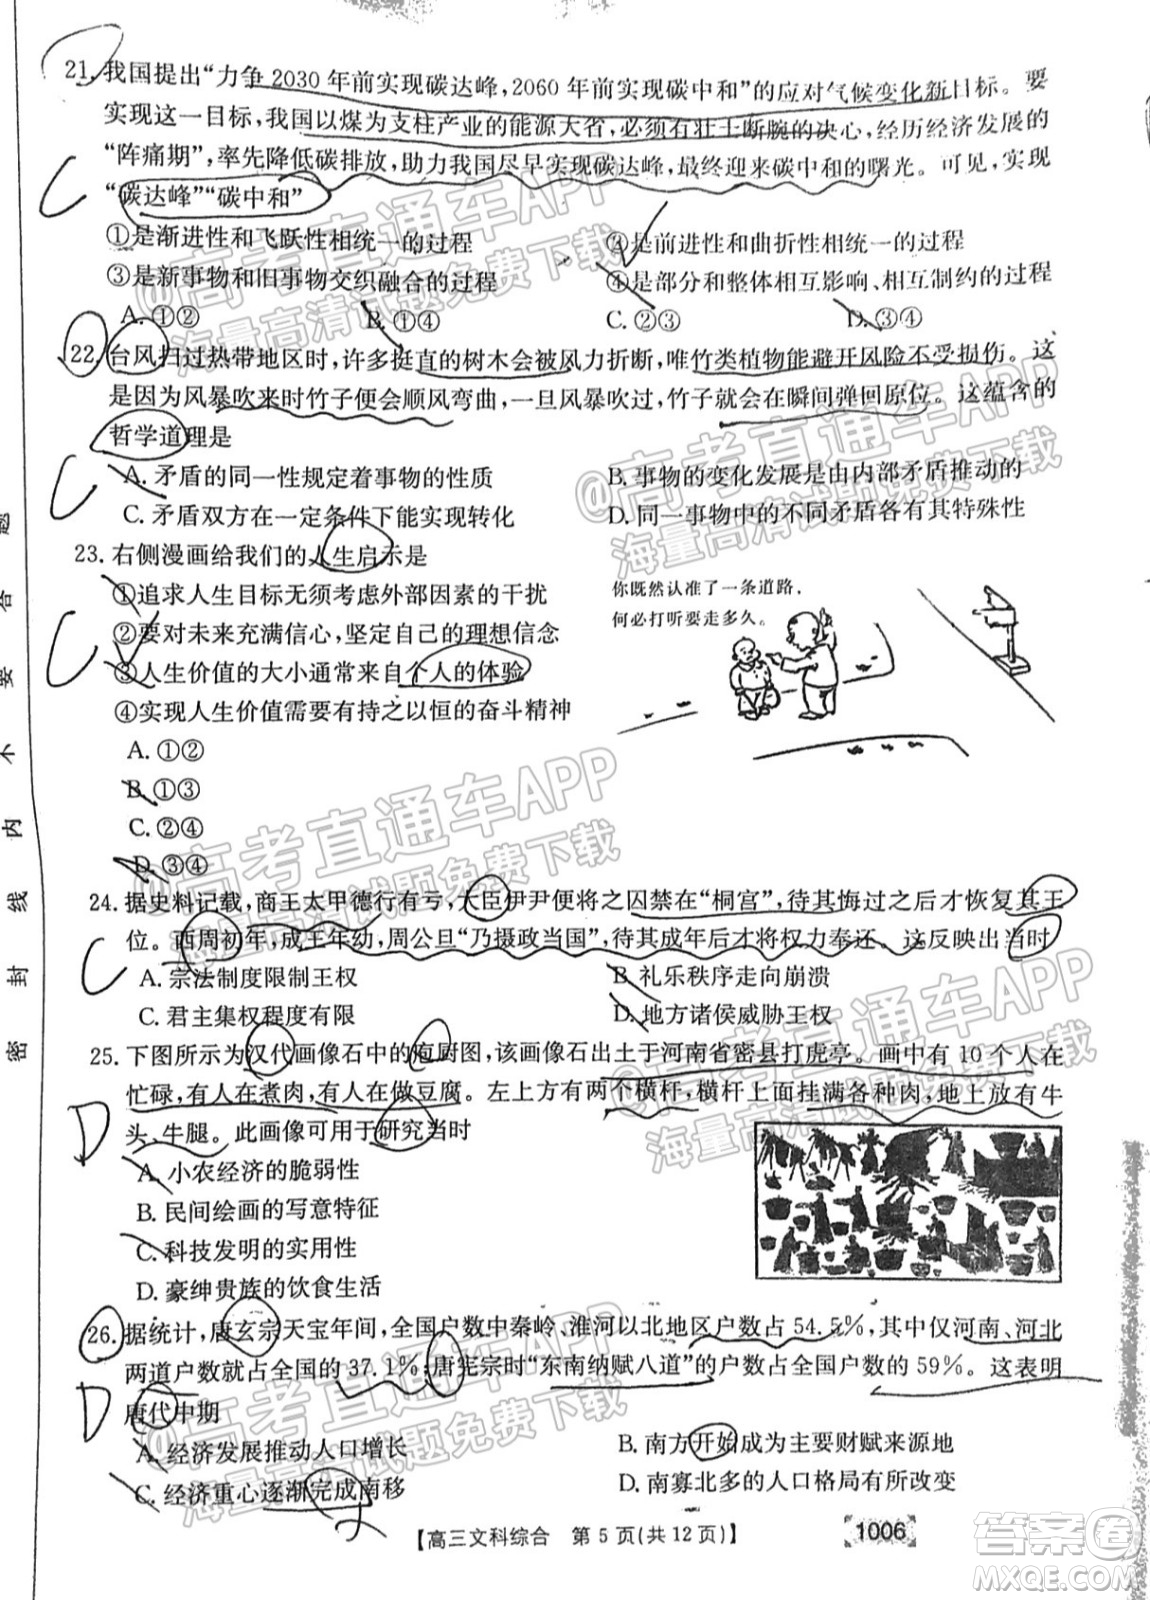 21. 我国提出“力争 2030 年前实现碳达峰,2060 年前实现碳中和”的应对气候变化新目标。要
实现这一目标,我国以煤为支柱产业的能源大省,必须有壮士断腕的决心,经历经济发展的
“阵痛期”,率先降低碳排放,助力我国尽早实现碳达峰,最终迎来碳中和的曙光。可见,实现
“碳达峰”“碳中和”
C
①是渐进性和飞跃性相统一的过程 ②是前进性和曲折性相统一的过程
③是新事物和旧事物交织融合的过程 ④是部分和整体相互影响、相互制约的过程
A. ①② B. ①④ C. ②③ D. ③④
22. 台风扫过热带地区时,许多挺直的树木会被风力折断,唯竹类植物能避开风险不受损伤。这
是因为风暴吹来时竹子便会顺风弯曲,一旦风暴吹过,竹子就会在瞬间弹回原位。这蕴含的
哲学道理是
C
A. 矛盾的同一性规定着事物的性质 B. 事物的变化发展是由内部矛盾推动的
C. 矛盾双方在一定条件下能实现转化 D. 同一事物中的不同矛盾各有其特殊性
23. 右侧漫画给我们的人生启示是
①追求人生目标无须考虑外部因素的干扰
②要对未来充满信心,坚定自己的理想信念
C
③人生价值的大小通常来自个人的体验
④实现人生价值需要有持之以恒的奋斗精神
A. ①②
B. ①③
C. ②④
D. ③④
你既然认准了一条道路,
何必打听要走多久。
24. 据史料记载,商王太甲德行有亏,大臣伊尹便将之囚禁在“桐宫”,待其悔过之后才恢复其王
位。西周初年,成王年幼,周公旦“乃摄政当国”,待其成年后才将权力奉还。这反映出当时
C
A. 宗法制度限制王权 B. 礼乐秩序走向崩溃
C. 君主集权程度有限 D. 地方诸侯威胁王权
25. 下图所示为汉代画像石中的庖厨图,该画像石出土于河南省密县打虎亭。画中有 10 个人在
忙碌,有人在煮肉,有人在做豆腐。左上方有两个横杆,横杆上面挂满各种肉,地上放有牛
头、牛腿。此画像可用于研究当时
D
A. 小农经济的脆弱性
B. 民间绘画的写意特征
C. 科技发明的实用性
D. 豪绅贵族的饮食生活
26. 据统计,唐玄宗天宝年间,全国户数中秦岭、淮河以北地区户数占 54.5%,其中仅河南、河北
两道户数就占全国的 37.1%;唐宪宗时“东南纳赋八道”的户数占全国户数的 59%。这表明
唐代中期
D
A. 经济发展推动人口增长 B. 南方开始成为主要财赋来源地
C. 经济重心逐渐完成南移 D. 南寡北多的人口格局有所改变
【高三文科综合 第 5 页(共 12 页)】
1006
密 封 线 内 不 要 答 题
@高考直通车APP
海量高清试题免费下载
@高考直通车APP
海量高清试题免费下载
@高考直通车APP
海量高清试题免费下载
@高考直通车APP
海量高清试题免费下载
@高考直通车APP
海量高清试题免费下载
答案圈
MXQE.COM